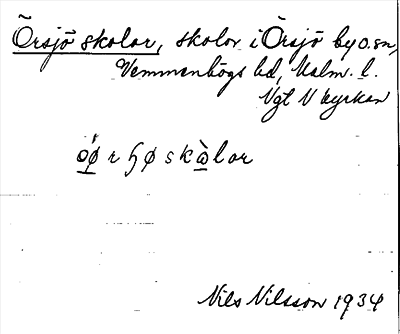 Örsjö skolor, skolor i Örsjö by o. sn,
Vemmenhögs hd, Malm. l.
Vgt V kyrkan
Nils Nilsson 1934